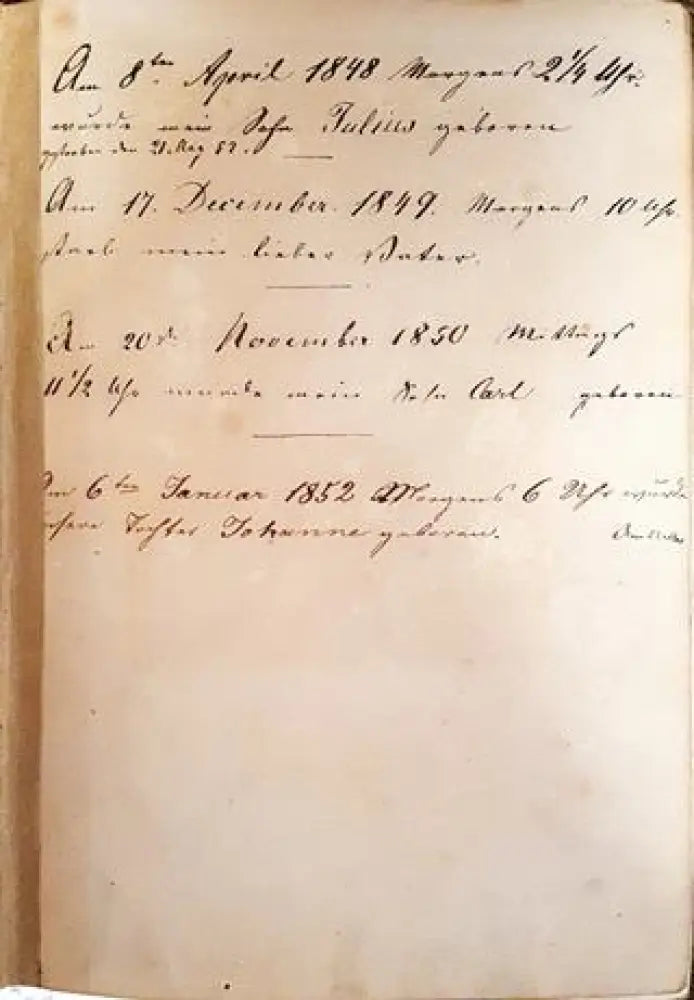 Am 8ten April 1848 Morgens 2 1/4 Uhr.
wurde mein Sohn Julius geboren
gestorben den 21. May 52.
Am 17. December. 1849. Morgens 10 Uhr.
starb mein lieber Vater.
Am 20ten November 1850 Mittags
11 1/2 Uhr wurde mein Sohn Carl geboren
Am 6ten Januar 1852 Morgens 6 Uhr wurde
unsere Tochter Johanne geboren.